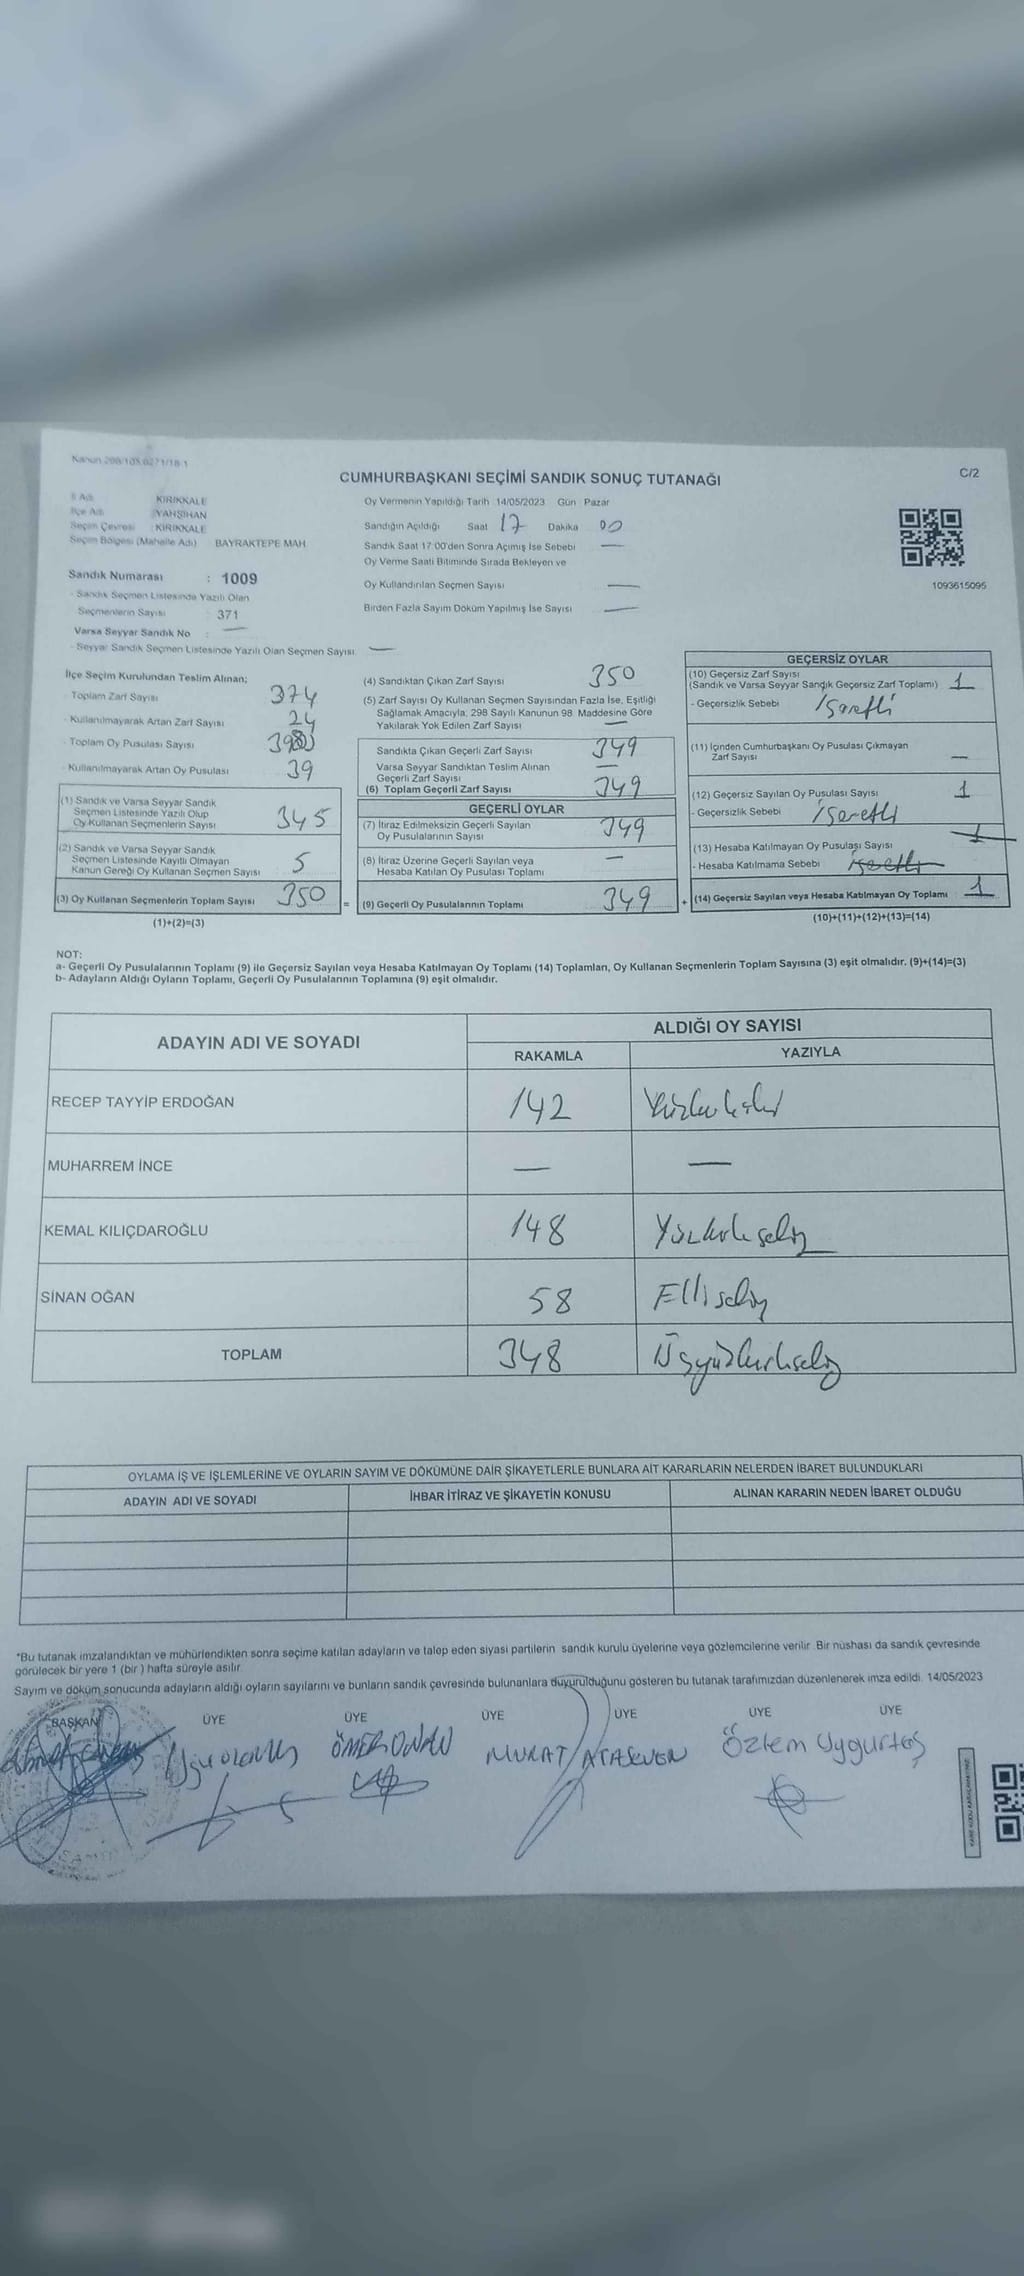 CUMHURBAŞKANI SEÇİMİ SANDIK SONUÇ TUTANAĞI
C/2
İl Adı KIRIKKALE
İlçe Adı YAHŞİHAN
Seçim Çevresi : KIRIKKALE
Seçim Bölgesi (Mahalle Adı) BAYRAKTEPE MAH.
Sandık Numarası : 1009
- Sandık Seçmen Listesinde Yazılı Olan
Seçmenlerin Sayısı : 371
Varsa Seyyar Sandık No : —
- Seyyar Sandık Seçmen Listesinde Yazılı Olan Seçmen Sayısı —
Oy Vermenin Yapıldığı Tarih 14/05/2023 Gün Pazar
Sandığın Açıldığı Saat 17 Dakika 00
Sandık Saat 17:00'den Sonra Açımış İse Sebebi —
Oy Verme Saati Bitiminde Sırada Bekleyen ve
Oy Kullandırılan Seçmen Sayısı —
Birden Fazla Sayım Döküm Yapılmış İse Sayısı —
1093615095
İlçe Seçim Kurulundan Teslim Alınan;
- Toplam Zarf Sayısı 374
- Kullanılmayarak Artan Zarf Sayısı 24
- Toplam Oy Pusulası Sayısı
- Kullanılmayarak Artan Oy Pusulası 39
(1) Sandık ve Varsa Seyyar Sandık
Seçmen Listesinde Yazılı Olup
Oy Kullanan Seçmenlerin Sayısı 345
(2) Sandık ve Varsa Seyyar Sandık
Seçmen Listesinde Kayıtlı Olmayan
Kanun Gereği Oy Kullanan Seçmen Sayısı 5
(3) Oy Kullanan Seçmenlerin Toplam Sayısı 350 =
(1)+(2)=(3)
(4) Sandıktan Çıkan Zarf Sayısı 350
(5) Zarf Sayısı Oy Kullanan Seçmen Sayısından Fazla İse, Eşitliği
Sağlamak Amacıyla; 298 Sayılı Kanunun 98. Maddesine Göre
Yakılarak Yok Edilen Zarf Sayısı —
Sandıkta Çıkan Geçerli Zarf Sayısı 349
Varsa Seyyar Sandıktan Teslim Alınan
Geçerli Zarf Sayısı —
(6) Toplam Geçerli Zarf Sayısı 349
GEÇERLİ OYLAR
(7) İtiraz Edilmeksizin Geçerli Sayılan
Oy Pusulalarının Sayısı 349
(8) İtiraz Üzerine Geçerli Sayılan veya
Hesaba Katılan Oy Pusulası Toplamı —
(9) Geçerli Oy Pusulalarının Toplamı 349 +
GEÇERSİZ OYLAR
(10) Geçersiz Zarf Sayısı
(Sandık ve Varsa Seyyar Sandık Geçersiz Zarf Toplamı) 1
- Geçersizlik Sebebi İşaretli
(11) İçinden Cumhurbaşkanı Oy Pusulası Çıkmayan
Zarf Sayısı —
(12) Geçersiz Sayılan Oy Pusulası Sayısı 1
- Geçersizlik Sebebi İşaretli
(13) Hesaba Katılmayan Oy Pusulası Sayısı 1
- Hesaba Katılmama Sebebi
(14) Geçersiz Sayılan veya Hesaba Katılmayan Oy Toplamı 1
(10)+(11)+(12)+(13)=(14)
NOT:
a- Geçerli Oy Pusulalarının Toplamı (9) ile Geçersiz Sayılan veya Hesaba Katılmayan Oy Toplamı (14) Toplamları, Oy Kullanan Seçmenlerin Toplam Sayısına (3) eşit olmalıdır. (9)+(14)=(3)
b- Adayların Aldığı Oyların Toplamı, Geçerli Oy Pusulalarının Toplamına (9) eşit olmalıdır.
ADAYIN ADI VE SOYADI
ALDIĞI OY SAYISI
RAKAMLA YAZIYLA
RECEP TAYYİP ERDOĞAN 142
MUHARREM İNCE — —
KEMAL KILIÇDAROĞLU 148
SİNAN OĞAN 58
TOPLAM 348
OYLAMA İŞ VE İŞLEMLERİNE VE OYLARIN SAYIM VE DÖKÜMÜNE DAİR ŞİKAYETLERLE BUNLARA AİT KARARLARIN NELERDEN İBARET BULUNDUKLARI
ADAYIN ADI VE SOYADI İHBAR İTİRAZ VE ŞİKAYETİN KONUSU ALINAN KARARIN NEDEN İBARET OLDUĞU
*Bu tutanak imzalandıktan ve mühürlendikten sonra seçime katılan adayların ve talep eden siyasi partilerin sandık kurulu üyelerine veya gözlemcilerine verilir. Bir nüshası da sandık çevresinde
görülecek bir yere 1 (bir ) hafta süreyle asılır.
Sayım ve döküm sonucunda adayların aldığı oyların sayılarını ve bunların sandık çevresinde bulunanlara duyurulduğunu gösteren bu tutanak tarafımızdan düzenlenerek imza edildi. 14/05/2023
BAŞKAN ÜYE ÜYE ÜYE ÜYE ÜYE ÜYE
ÖMER MURAT Özlem Uygurtaş